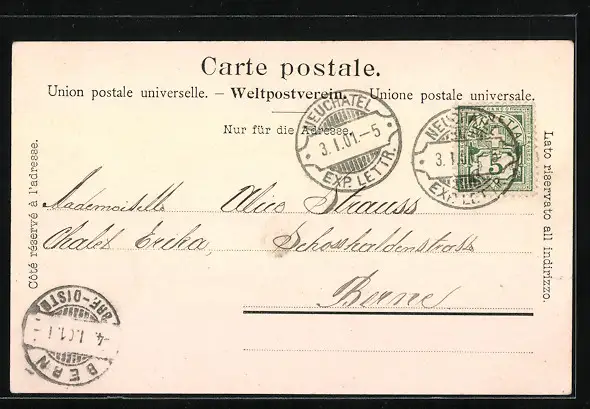 Carte postale.
Union postale universelle. – Weltpostverein. – Unione postale universale.
Nur für die Adresse.
NEUCHATEL
3.I.01.–5
EXP. LETTR.
NEUCHATEL
3.I.01.–5
EXP. LETTR.
HELVETIA
5
Côté réservé à l'adresse.
Lato riservato all indirizzo.
Mademoiselle Alice Strauss
Chalet Erika, Schosshaldenstrasse
Berne
BERN
4.I.01.I–
BRF-DISTR.